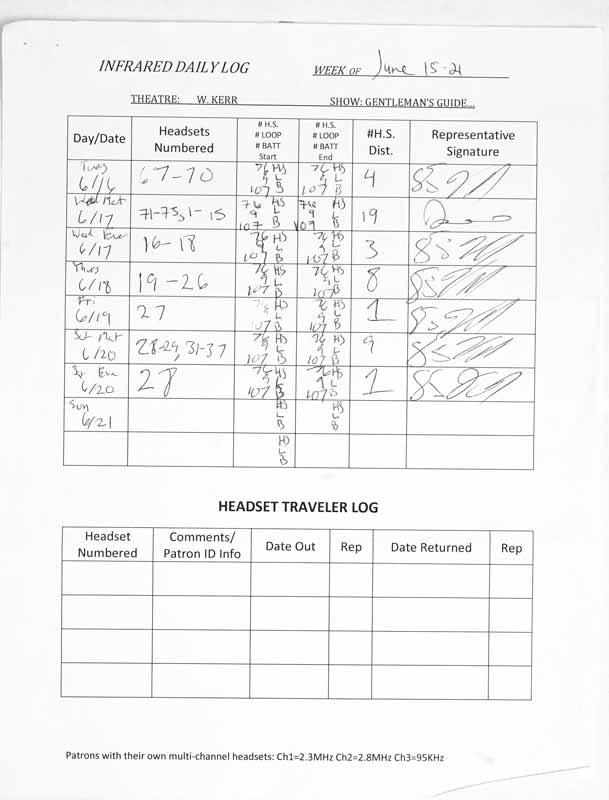 INFRARED DAILY LOG
WEEK OF June 15-21
THEATRE: W. KERR SHOW: GENTLEMAN'S GUIDE...
Day/Date Headsets Numbered # H.S. # LOOP # BATT Start # H.S. # LOOP # BATT End #H.S. Dist. Representative Signature
Tues 6/16 67-70 76 HS 9 L 107 B 76 HS 9 L 107 B 4
Wed Mat 6/17 71-75, 1-15 76 HS 9 L 107 B 76 HS 9 L 109 B 19
Wed Eve 6/17 16-18 76 HS 9 L 107 B 76 HS 9 L 107 B 3
Thurs 6/18 19-26 76 HS 9 L 107 B 76 HS 9 L 107 B 8
Fri 6/19 27 76 HS 9 L 107 B 76 HS 9 L 107 B 1
Sat Mat 6/20 28-29, 31-37 76 HS 9 L 107 B 76 HS 9 L 107 B 9
Sat Eve 6/20 28 76 HS 9 L 107 B 76 HS 9 L 107 B 1
Sun 6/21 HS L B HS L B
HS L B
HEADSET TRAVELER LOG
Headset Numbered Comments/ Patron ID Info Date Out Rep Date Returned Rep
Patrons with their own multi-channel headsets: Ch1=2.3MHz Ch2=2.8MHz Ch3=95KHz